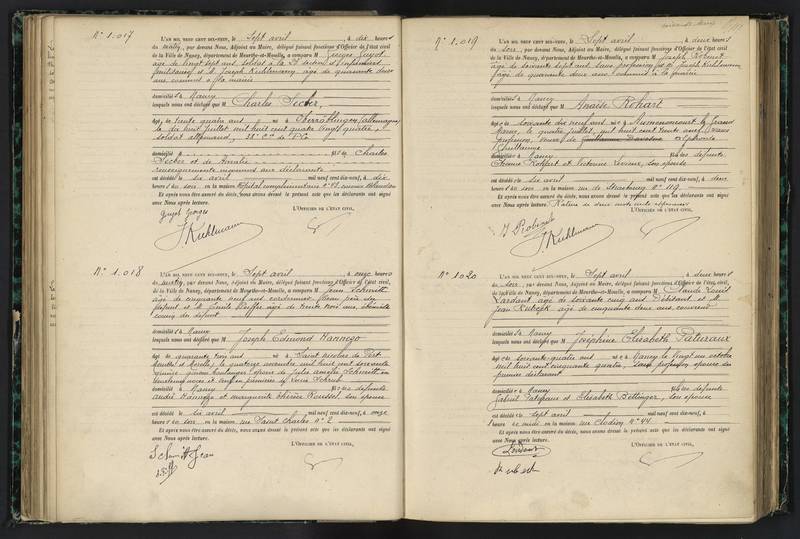 N° 1.017
L'AN MIL NEUF CENT DIX-NEUF, le Sept avril, à dix heures
du matin, par devant Nous, Adjoint au Maire, délégué faisant fonctions d'Officier de l'état civil
de la Ville de Nancy, département de Meurthe-et-Moselle, a comparu M Georges Guyot
âgé de vingt sept ans, soldat à la
et Joseph Kuhlmann, âgé de quarante deux
ans, employé à la mairie
domiciliés à Nancy
lesquels nous ont déclaré que M Charles Secker,
âgé de trente quatre ans, né à Oberröblingen (Allemagne)
le dix huit juillet mil huit cent quatre vingt quatre,
soldat allemand,
domicilié à fils de Charles
Secker et de Amélie
renseignements
est décédé le six avril mil neuf cent dix-neuf, à dix
heures du soir, en la maison, hôpital complémentaire
Et après nous être assuré du décès, nous avons dressé le présent acte que les déclarants ont signé
avec Nous après lecture.
L'OFFICIER DE L'ÉTAT CIVIL,
Guyot Georges
J Kuhlmann
N° 1.018
L'AN MIL NEUF CENT DIX-NEUF, le Sept avril, à onze heures
du matin, par devant Nous, Adjoint au Maire, délégué faisant fonctions d'Officier de l'état civil,
de la Ville de Nancy, département de Meurthe-et-Moselle, a comparu M Jean Schmitt
âgé de cinquante neuf ans, cordonnier, beau père du
défunt et M Emile Pfeiffer âgé de trente trois ans, ébéniste
cousin du défunt
domiciliés à Nancy
lesquels nous ont déclaré que M Joseph Edmond Hannezo
âgé de quarante trois ans né à Saint Nicolas de Port
Meurthe et Moselle, le quatorze novembre mil huit cent soixante
quinze, époux de Jules Amélie Schmitt en
deuxièmes noces et veuf en premières de
domicilié à Nancy fils de défunts
André Hannezo et Marguerite Thérèse Roussel, son épouse
est décédé le six avril mil neuf cent dix-neuf, à onze
heures du soir, en la maison, rue Saint Charles n° 2
Et après nous être assuré du décès, nous avons dressé le présent acte que les déclarants ont signé
avec Nous après lecture.
L'OFFICIER DE L'ÉTAT CIVIL,
Schmitt Jean
N° 1.019
L'AN MIL NEUF CENT DIX-NEUF, le Sept avril, à deux heures
du soir, par devant Nous, Adjoint au Maire, délégué faisant fonctions d'Officier de l'état civil
de la Ville de Nancy, département de Meurthe-et-Moselle, a comparu M Joseph Robinet
âgé de soixante sept ans, sans profession et M Joseph Kuhlmann
âgé de quarante deux ans, employé à la mairie
domiciliés à Nancy
lesquels nous ont déclaré que M Anaïse Rohart
âgée de soixante dix neuf ans née à
Marne, le quatre juillet mil huit cent trente neuf, sans
profession, veuve de
Guillaume
domiciliée à Nancy fille de défunts
Etienne Rohart et Victoire Levieux, son épouse
est décédée le six avril mil neuf cent dix-neuf, à deux
heures du soir, en la maison, rue de Strasbourg n° 119.
Et après nous être assuré du décès, nous avons dressé le présent acte que les déclarants ont signé
avec Nous après lecture.
L'OFFICIER DE L'ÉTAT CIVIL,
J Robinet
J. Kuhlmann
N° 1.020
L'AN MIL NEUF CENT DIX-NEUF, le Sept avril, à deux heures
du soir, par devant Nous, Adjoint au Maire, délégué faisant fonctions d'Officier de l'état civil,
de la Ville de Nancy, département de Meurthe-et-Moselle, a comparu M Claude Louis
Lardant, âgé de soixante cinq ans, Débitant et M
Jean Kubeck âgé de cinquante deux ans, couvreur
domiciliés à Nancy
lesquels nous ont déclaré que M Joséphine Elisabeth Patureaux
âgée de soixante quatre ans née à Nancy le vingt un octobre
mil huit cent cinquante quatre, sans profession, épouse du
premier déclarant
domiciliée à Nancy fille de défunts
Gabriel Patureaux et Elisabeth Bettinger, son épouse
est décédée le sept avril mil neuf cent dix-neuf, à
heure du midi en la maison, rue Clodion n° 44
Et après nous être assuré du décès, nous avons dressé le présent acte que les déclarants ont signé
avec Nous après lecture.
L'OFFICIER DE L'ÉTAT CIVIL,
Lardant
Kubeck